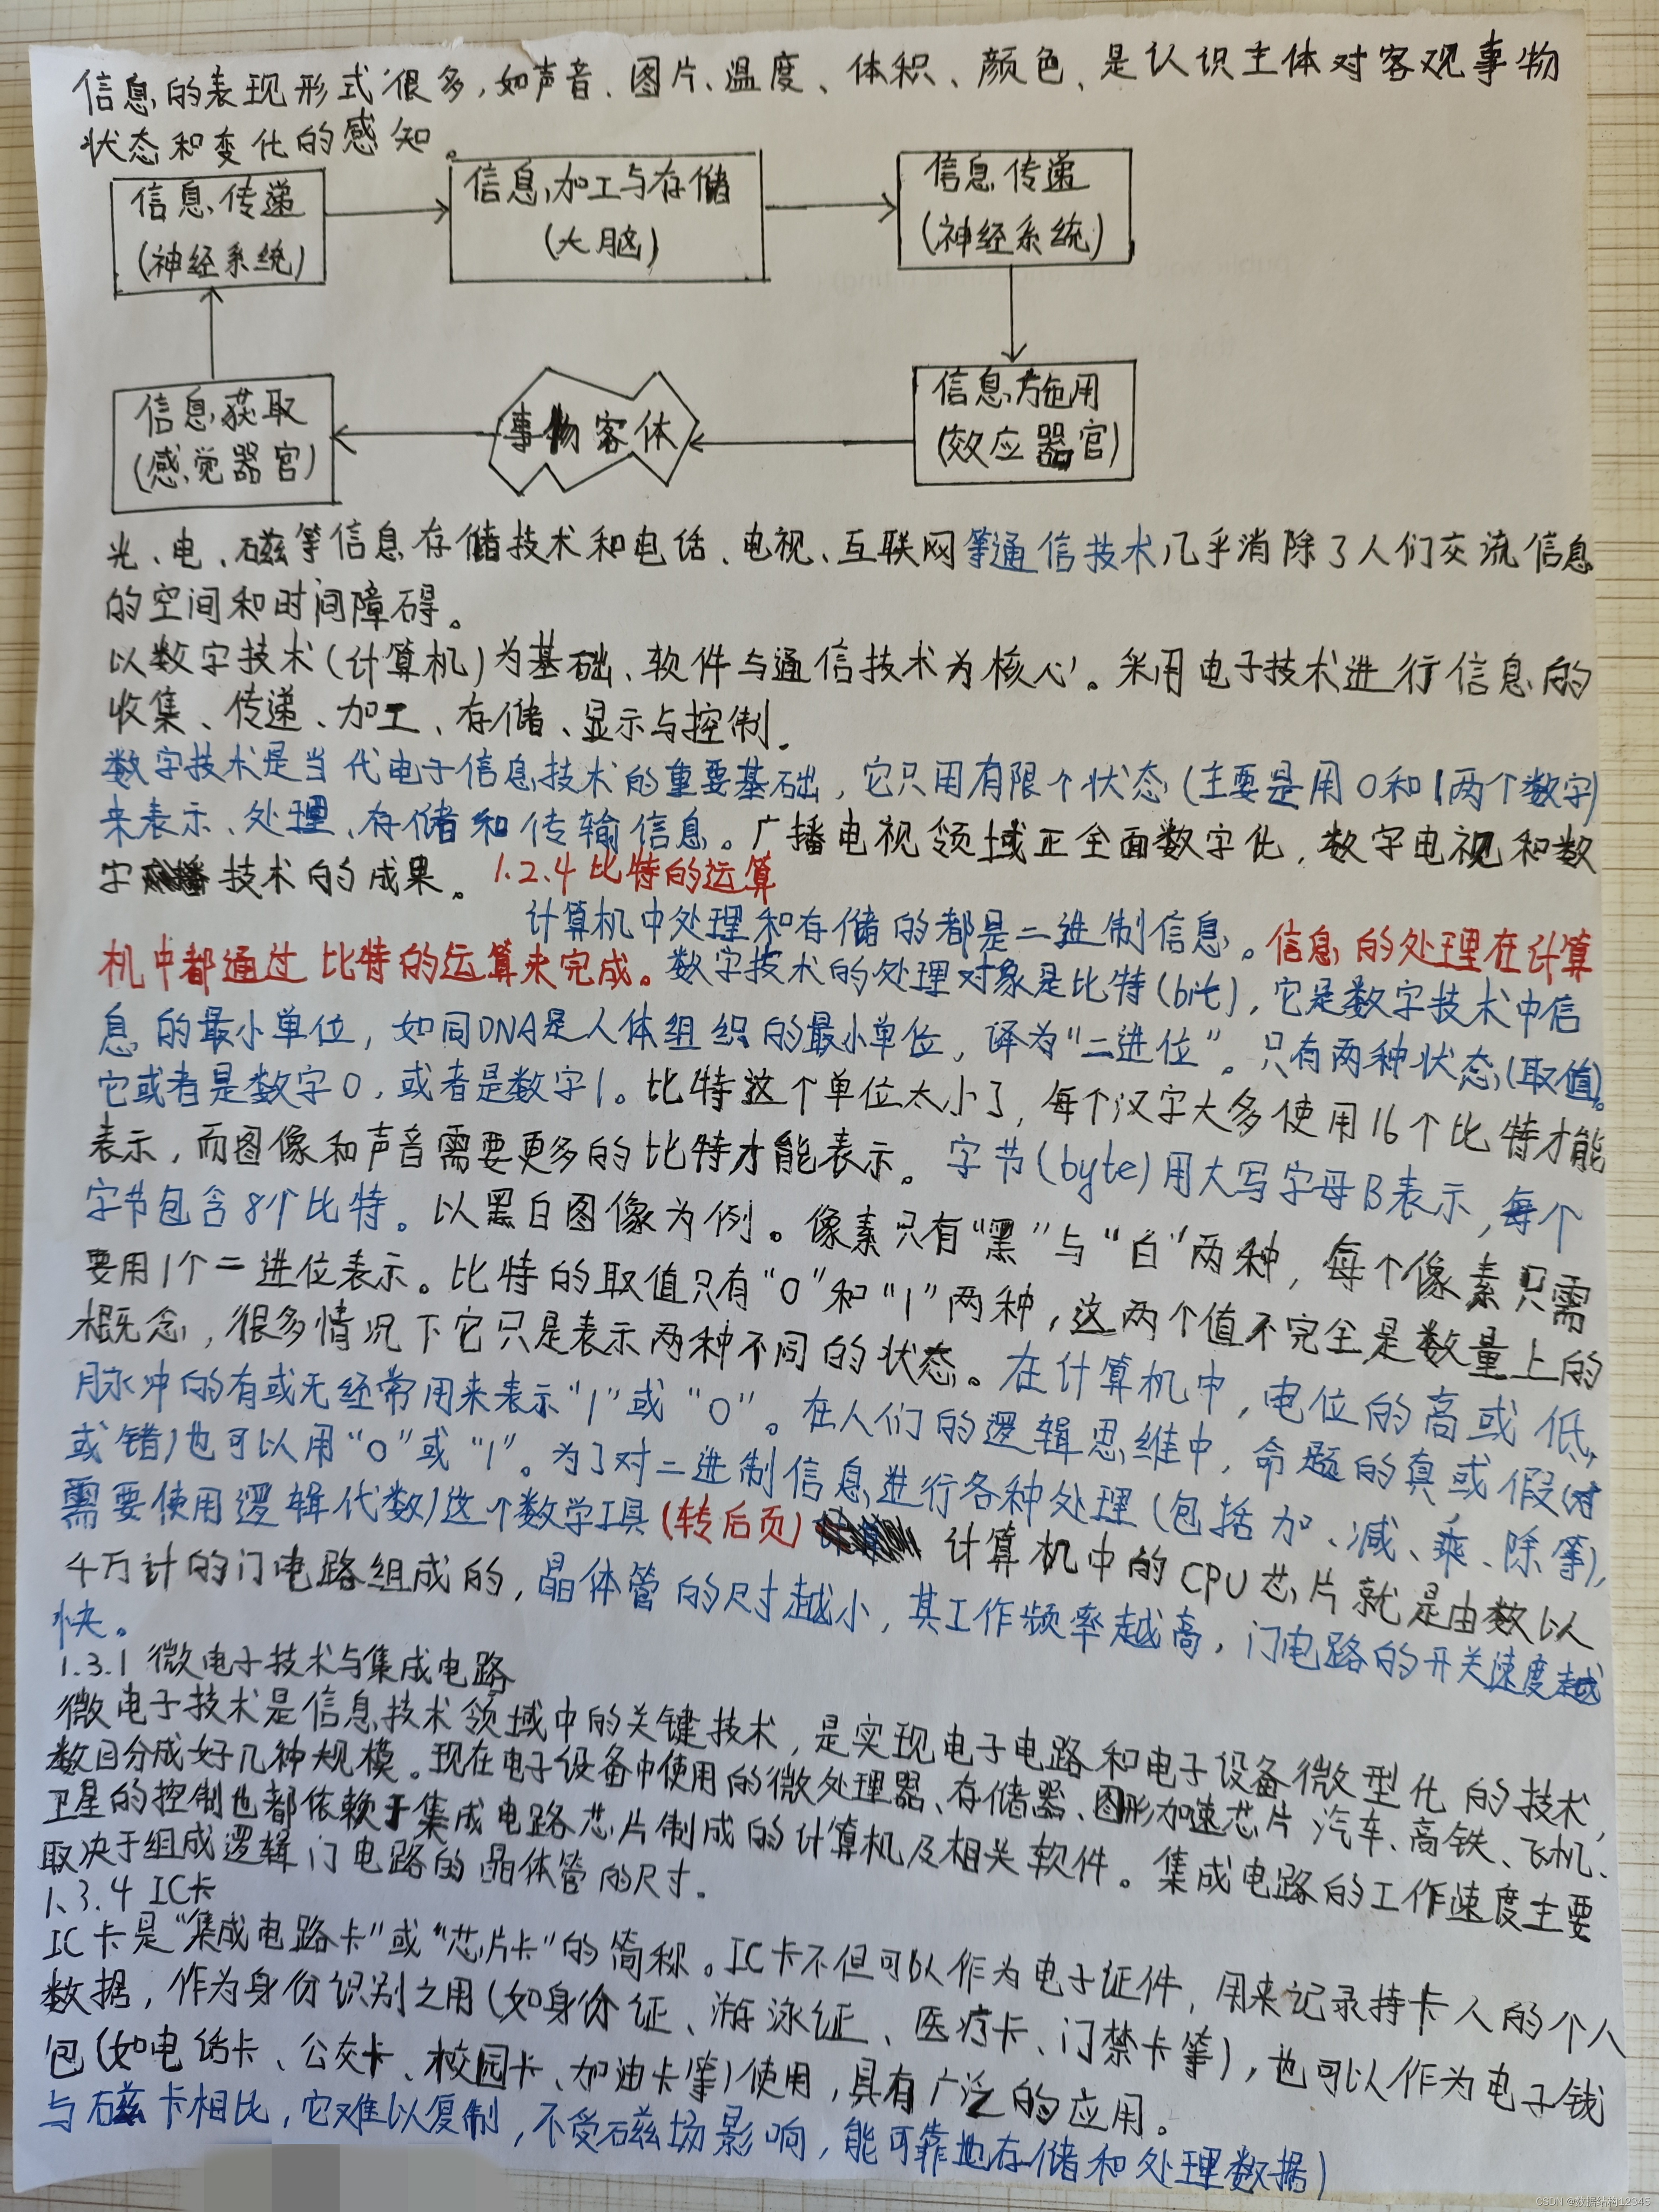 信息的表现形式很多,如声音、图片、温度、体积、颜色、是认识主体对客观事物
状态和变化的感知。
信息传递
(神经系统)
信息加工与存储
(大脑)
信息传递
(神经系统)
信息获取
(感觉器官)
事物客体
信息施用
(效应器官)
光、电、磁等信息存储技术和电话、电视、互联网等通信技术几乎消除了人们交流信息
的空间和时间障碍。
以数字技术(计算机)为基础、软件与通信技术为核心。采用电子技术进行信息的
收集、传递、加工、存储、显示与控制.
数字技术是当代电子信息技术的重要基础,它只用有限个状态(主要是用0和1两个数字)
来表示、处理、存储和传输信息。广播电视领域正全面数字化,数字电视和数
字 技术的成果。1.2.4 比特的运算
计算机中处理和存储的都是二进制信息。信息的处理在计算
机中都通过比特的运算来完成。数字技术的处理对象是比特(bit),它是数字技术中信
息的最小单位,如同DNA是人体组织的最小单位,译为“二进位”。只有两种状态(取值)。
它或者是数字0,或者是数字1。比特这个单位太小了,每个汉字大多使用16个比特才能
表示,而图像和声音需要更多的比特才能表示。字节(byte)用大写字母B表示,每个
字节包含8个比特。以黑白图像为例。像素只有“黑”与“白”两种,每个像素只需
要用1个二进位表示。比特的取值只有“0”和“1”两种,这两个值不完全是数量上的
概念,很多情况下它只是表示两种不同的状态。在计算机中,电位的高或低,
脉冲的有或无经常用来表示“1”或“0”。在人们的逻辑思维中,命题的真或假(对
或错)也可以用“0”或“1”。为了对二进制信息进行各种处理(包括加、减、乘、除等),
需要使用逻辑代数)这个数学工具(转后页) 计算机中的CPU芯片就是由数以
4万计的门电路组成的,晶体管的尺寸越小,其工作频率越高,门电路的开关速度越
快。
1.3.1 微电子技术与集成电路
微电子技术是信息技术领域中的关键技术,是实现电子电路和电子设备微型化的技术,
数目分成好几种规模。现在电子设备中使用的微处理器、存储器、图形加速芯片 汽车、高铁、飞机、
卫星的控制也都依赖于集成电路芯片制成的计算机及相关软件。集成电路的工作速度主要
取决于组成逻辑门电路的晶体管的尺寸.
1.3.4 IC卡
IC卡是“集成电路卡”或“芯片卡”的简称。IC卡不但可以作为电子证件,用来记录持卡人的个人
数据,作为身份识别之用(如身份证、游泳证、医疗卡、门禁卡等),也可以作为电子钱
包(如电话卡、公交卡、校园卡、加油卡等)使用,具有广泛的应用。
与磁卡相比,它难以复制,不受磁场影响,能可靠地存储和处理数据)
CSDN @数据结构12345